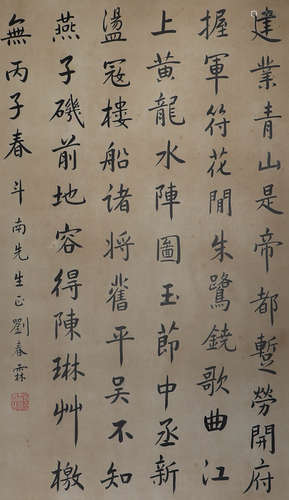 建業青山是帝都蹔勞開府
握軍符花間朱鷺鐃歌曲江
上黃龍水陣圖玉節中丞新
盪寇樓船諸將舊平吳不知
燕子磯前地容得陳琳艸檄
無丙子春 斗南先生正 劉春霖